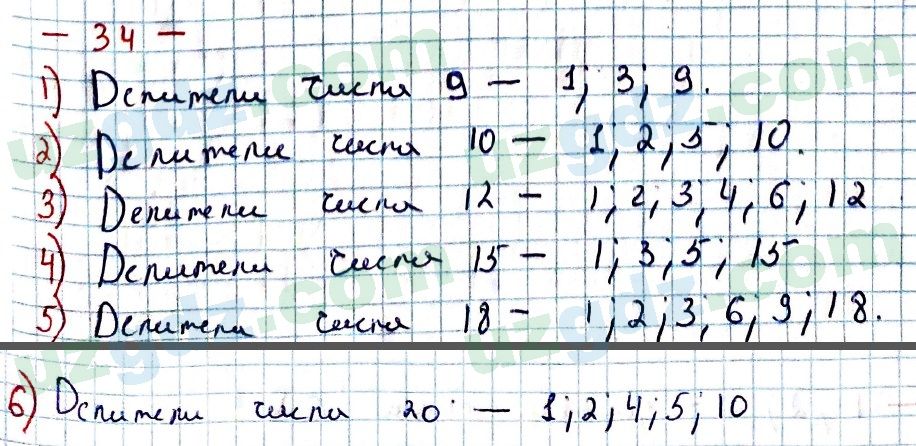 - 34 -
1) Делители числа 9 - 1; 3; 9.
2) Делители числа 10 - 1; 2; 5; 10.
3) Делители числа 12 - 1; 2; 3; 4; 6; 12
4) Делители числа 15 - 1; 3; 5; 15
5) Делители числа 18 - 1; 2; 3; 6; 9; 18.
6) Делители числа 20 - 1; 2; 4; 5; 10
uzgdz.com